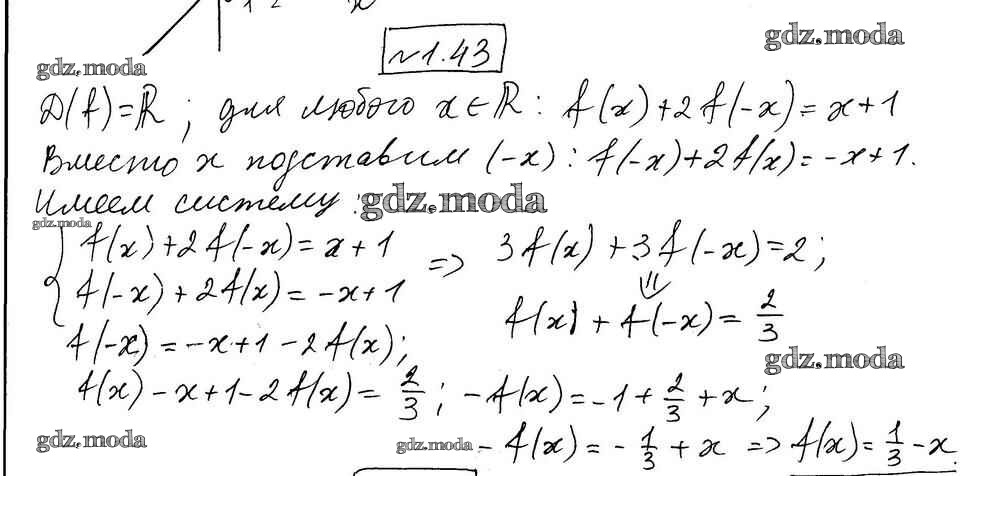 №1.43
gdz.moda
gdz.moda
D(f)=ℝ; для любого x∈ℝ: f(x)+2f(-x)=x+1
Вместо x подставим (-x): f(-x)+2f(x)=-x+1.
Имеем систему: gdz.moda
gdz.moda
{ f(x)+2f(-x)=x+1
f(-x)+2f(x)=-x+1 => 3f(x)+3f(-x)=2;
f(x)+f(-x)=2/3
f(-x)=-x+1-2f(x);
gdz.moda
f(x)-x+1-2f(x)=2/3; -f(x)=-1+2/3+x;
gdz.moda
gdz.moda
-f(x)=-1/3+x => f(x)=1/3-x.